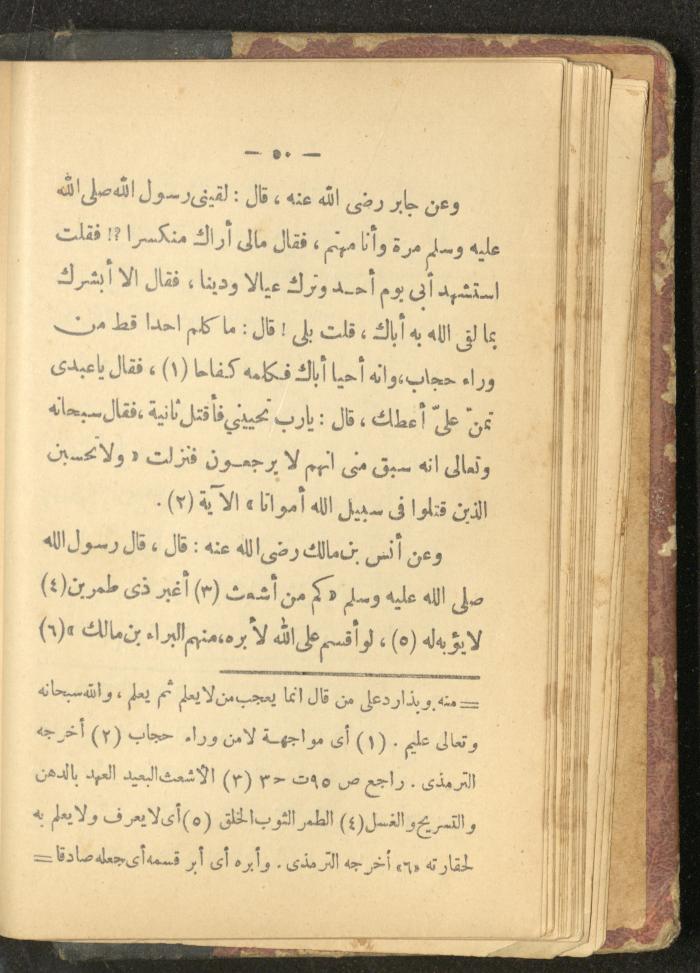 — ٥٠ —
وعن جابر رضى الله عنه ، قال : لقينى رسول الله صلى الله
عليه وسلم مرة وأنا مهتم ، فقال مالى أراك منكسرا ؟! فقلت
استشهد أبى يوم أحد وترك عيالا ودينا ، فقال الا أبشرك
بما لقى الله به أباك ، قلت بلى ! قال : ما كلم احدا قط من
وراء حجاب،وانه أحيا أباك فكلمه كفاحا (١) ، فقال ياعبدى
تمنّ علىّ أعطك ، قال : يارب تحيينى فأقتل ثانية ،فقال سبحانه
وتعالى انه سبق منى انهم لا يرجعون فنزلت « ولا تحسبن
الذين قتلوا فى سبيل الله أمواتا » الآية (٢) .
وعن أنس بن مالك رضى الله عنه : قال ، قال رسول الله
صلى الله عليه وسلم « كم من أشعث (٣) أغبر ذى طمرين (٤)
لا يؤبه له (٥) ، لو أقسم على الله لأبره،منهم البراء بن مالك » (٦)
= منه وبذا رد على من قال انما يعجب من لا يعلم ثم يعلم ، والله سبحانه
وتعالى عليم . (١) أى مواجهة لا من وراء حجاب (٢) أخرجه
الترمذى . راجع ص ٩٥ ت ح ٣ (٣) الأشعث البعيد العهد بالدهن
والتسريح والغسل (٤) الطمر الثوب الخلق (٥) أى لا يعرف ولا يعلم به
لحقارته «٦» أخرجه الترمذى . وأبره أى أبر قسمه أى جعله صادقا =